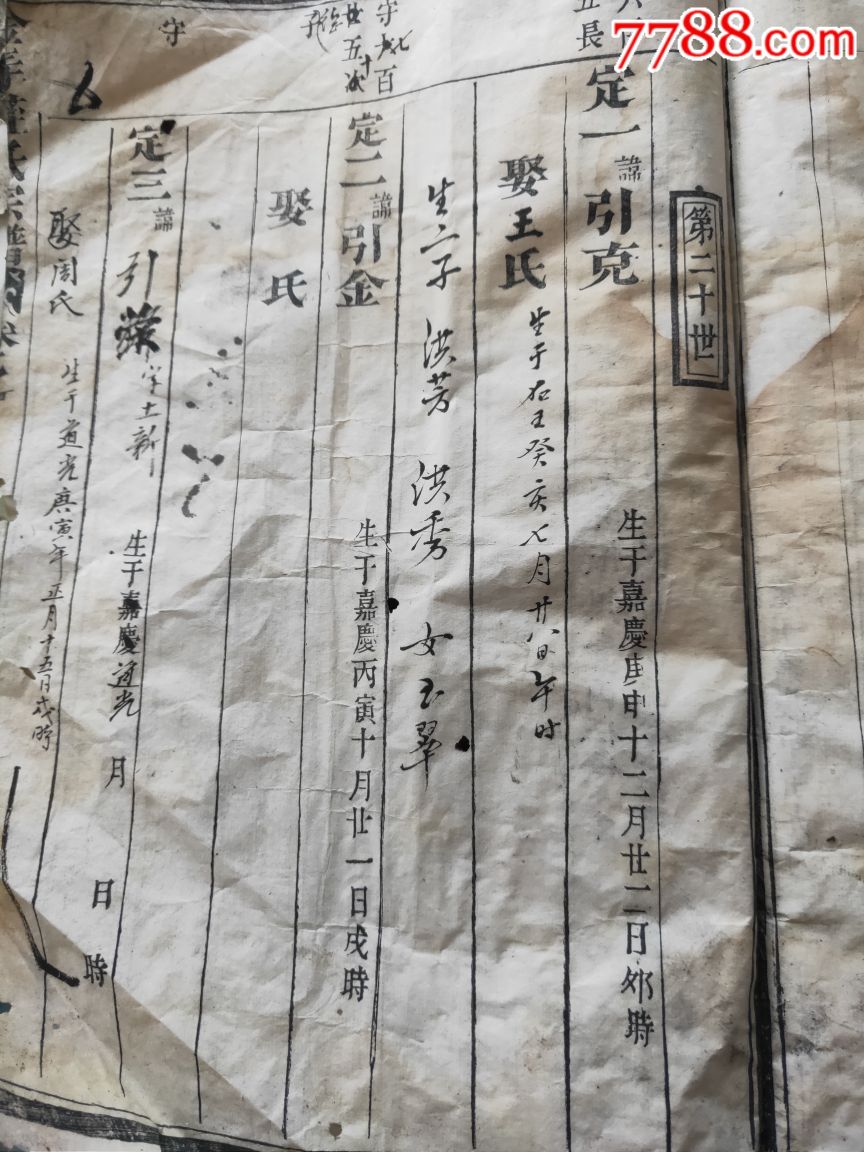 7788.com
第二十世
五長
定一諱引克 生于嘉慶庚申十二月廿二日卯時
娶王氏 生于 癸亥七月廿八日午时
生二子 洪芳 洪秀 女玉翠
守 百
廿五
定二諱引金 生于嘉慶丙寅十月廿一日戌時
娶 氏
守
定三諱引榮字士新 生于嘉慶道光 月 日 時
娶周氏 生于道光庚寅年正月十五日戌時
氏宗譜